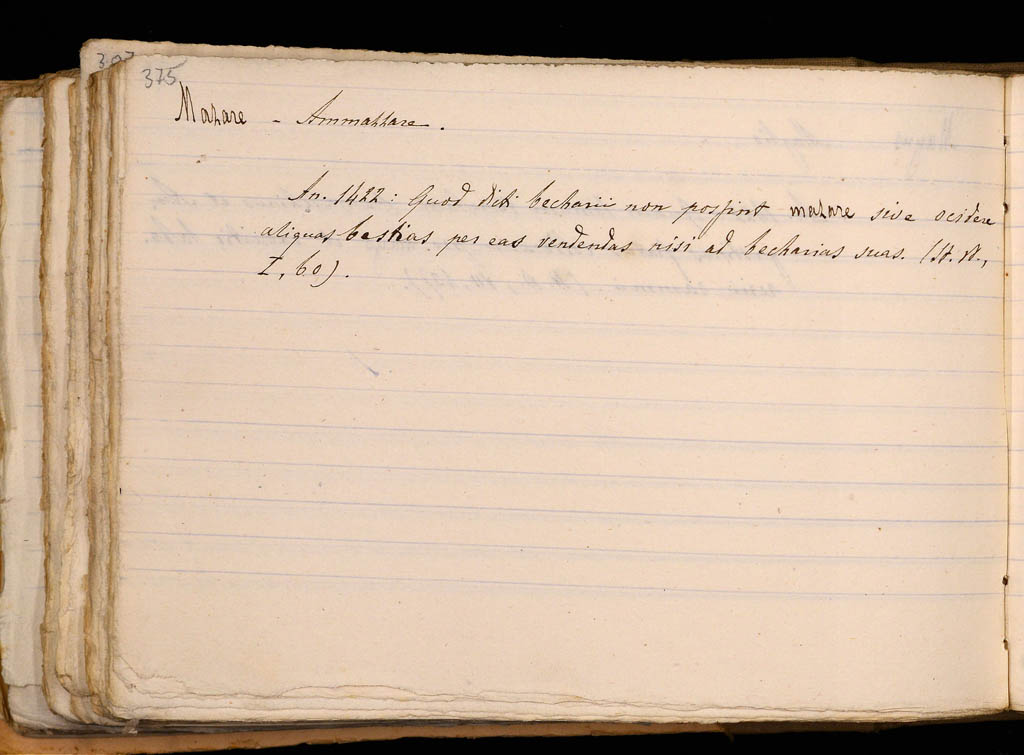 375
Mazare - Ammazzare.
An. 1422: Quod dicti becharii non possint mazare sive ocidere
aliquas bestias per eas vendendas nisi ad becharias suas. (St. N.,
I, 60).